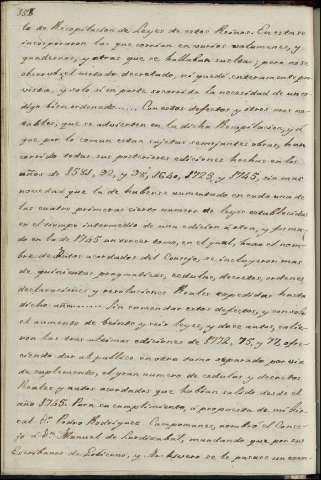 358
lo de Recopilacion de Leyes de estos Reinos. En esta se
incorporaron las que corrian en varios volumenes, y
quadernos, y otras que se hallaban sueltas; pero no se
observó el metodo decretado, ni quedó enteramente pro-
vista, y solo si en parte socorrida la necesidad de un co-
digo bien ordenado.... Con estos defectos y otros mas no-
tables, que se advierten en la dicha Recopilacion, y á
que por lo comun estan sujetas semejantes obras, han
corrido todas sus posteriores ediciones hechas en los
años de 1581, 92, y 98, 1640, 1723, y 1745, sin mas
novedad que la de haberse aumentado en cada una de
las cuatro primeras cierto numero de leyes establecidas
en el tiempo intermedio de una edicion á otra, y forma-
do en la de 1745 un tercer tomo, en el qual, bajo el nom-
bre de Autos acordados del Consejo, se incluyeron mas
de quinientas pragmaticas, cedulas, decretos, ordenes
declaraciones y resoluciones Reales expedidas hasta
dicho año.... Sin enmendar estos defectos, y con solo
el aumento de veinte y seis leyes, y doce autos, salie-
ron las tres ultimas ediciones de 1772, 75, y 77, ofre-
ciendo dar al publico en otro tomo separado, por via
de suplemento, el gran numero de cedulas y decretos
Reales y autos acordados que habian salido desde el
año 1745. Para su cumplimiento, á propuesta de mi fis-
cal Dn. Pedro Rodriguez Campomanes, nombró el Conse-
jo á Dn. Manuel de Lardizabal, mandando que por sus
Escribanos de Gobierno, y Archivero se le pasase un exem-